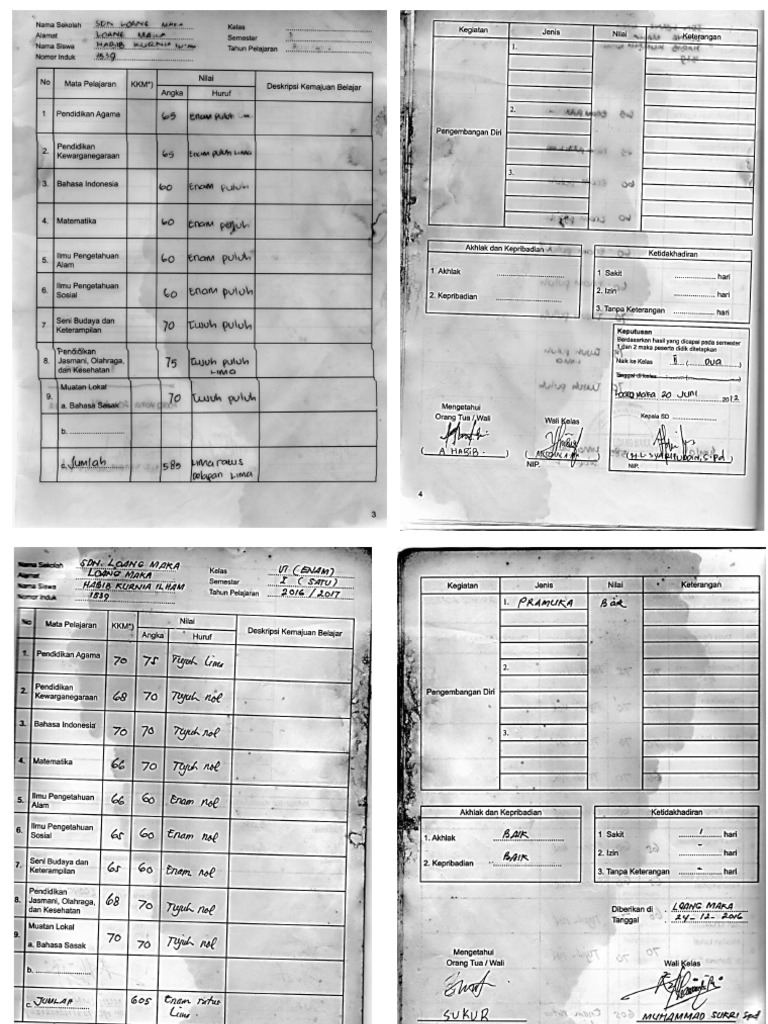 Nama Sekolah SDN LOANG MAKA Kelas
Alamat LOANG MAKA Semester
Nama Siswa HABIB KURNIA ILHAM Tahun Pelajaran
Nomor Induk 1839
No Mata Pelajaran KKM*) Nilai Deskripsi Kemajuan Belajar
Angka Huruf
1 Pendidikan Agama 65 Enam puluh
2. Pendidikan Kewarganegaraan 65 Enam puluh Lima
3. Bahasa Indonesia 60 Enam puluh
4. Matematika 60 Enam puluh
5. Ilmu Pengetahuan Alam 60 Enam puluh
6. Ilmu Pengetahuan Sosial 60 Enam puluh
7 Seni Budaya dan Keterampilan 70 Tujuh puluh
8. Pendidikan Jasmani, Olahraga, dan Kesehatan 75 Tujuh puluh LIMA
9. Muatan Lokal
a. Bahasa Sasak 70 Tujuh puluh
b.
c. Jumlah 585 Lima ratus Delapan LIMA
3
Kegiatan Jenis Nilai Keterangan
Pengembangan Diri
1.
2.
3.
Akhlak dan Kepribadian
1 Akhlak
2. Kepribadian
Ketidakhadiran
1 Sakit hari
2. Izin hari
3. Tanpa Keterangan hari
Keputusan
Berdasarkan hasil yang dicapai pada semester
1 dan 2 maka peserta didik ditetapkan
Naik ke Kelas II ( DUA )
Tinggal di kelas
LOANG MAKA 20 JUNI 2012
Mengetahui
Orang Tua / Wali
A. HABIB
Wali Kelas
NIP.
Kepala SD
NIP.
4
Nama Sekolah SDN. LOANG MAKA Kelas VI (ENAM)
Alamat LOANG MAKA Semester I (SATU)
Nama Siswa HABIB KURNIA ILHAM Tahun Pelajaran 2016/2017
Nomor Induk 1839
No Mata Pelajaran KKM*) Nilai Deskripsi Kemajuan Belajar
Angka Huruf
1. Pendidikan Agama 70 75 Tujuh Lima
2. Pendidikan Kewarganegaraan 68 70 Tujuh nol
3. Bahasa Indonesia 70 70 Tujuh nol
4. Matematika 66 70 Tujuh nol
5. Ilmu Pengetahuan Alam 66 60 Enam nol
6. Ilmu Pengetahuan Sosial 65 60 Enam nol
7. Seni Budaya dan Keterampilan 65 60 Enam nol
8. Pendidikan Jasmani, Olahraga, dan Kesehatan 68 70 Tujuh nol
9. Muatan Lokal
a. Bahasa Sasak 70 70 Tujuh nol
b.
c. JUMLAH 605 Enam ratus Lima
Kegiatan Jenis Nilai Keterangan
Pengembangan Diri
1. PRAMUKA Baik
2.
3.
Akhlak dan Kepribadian
1. Akhlak BAIK
2. Kepribadian BAIK
Ketidakhadiran
1 Sakit 1 hari
2. Izin - hari
3. Tanpa Keterangan - hari
Diberikan di LOANG MAKA
Tanggal 24-12-2016
Mengetahui
Orang Tua / Wali
SUKUR
Wali Kelas
MUHAMMAD SUKRI Spd